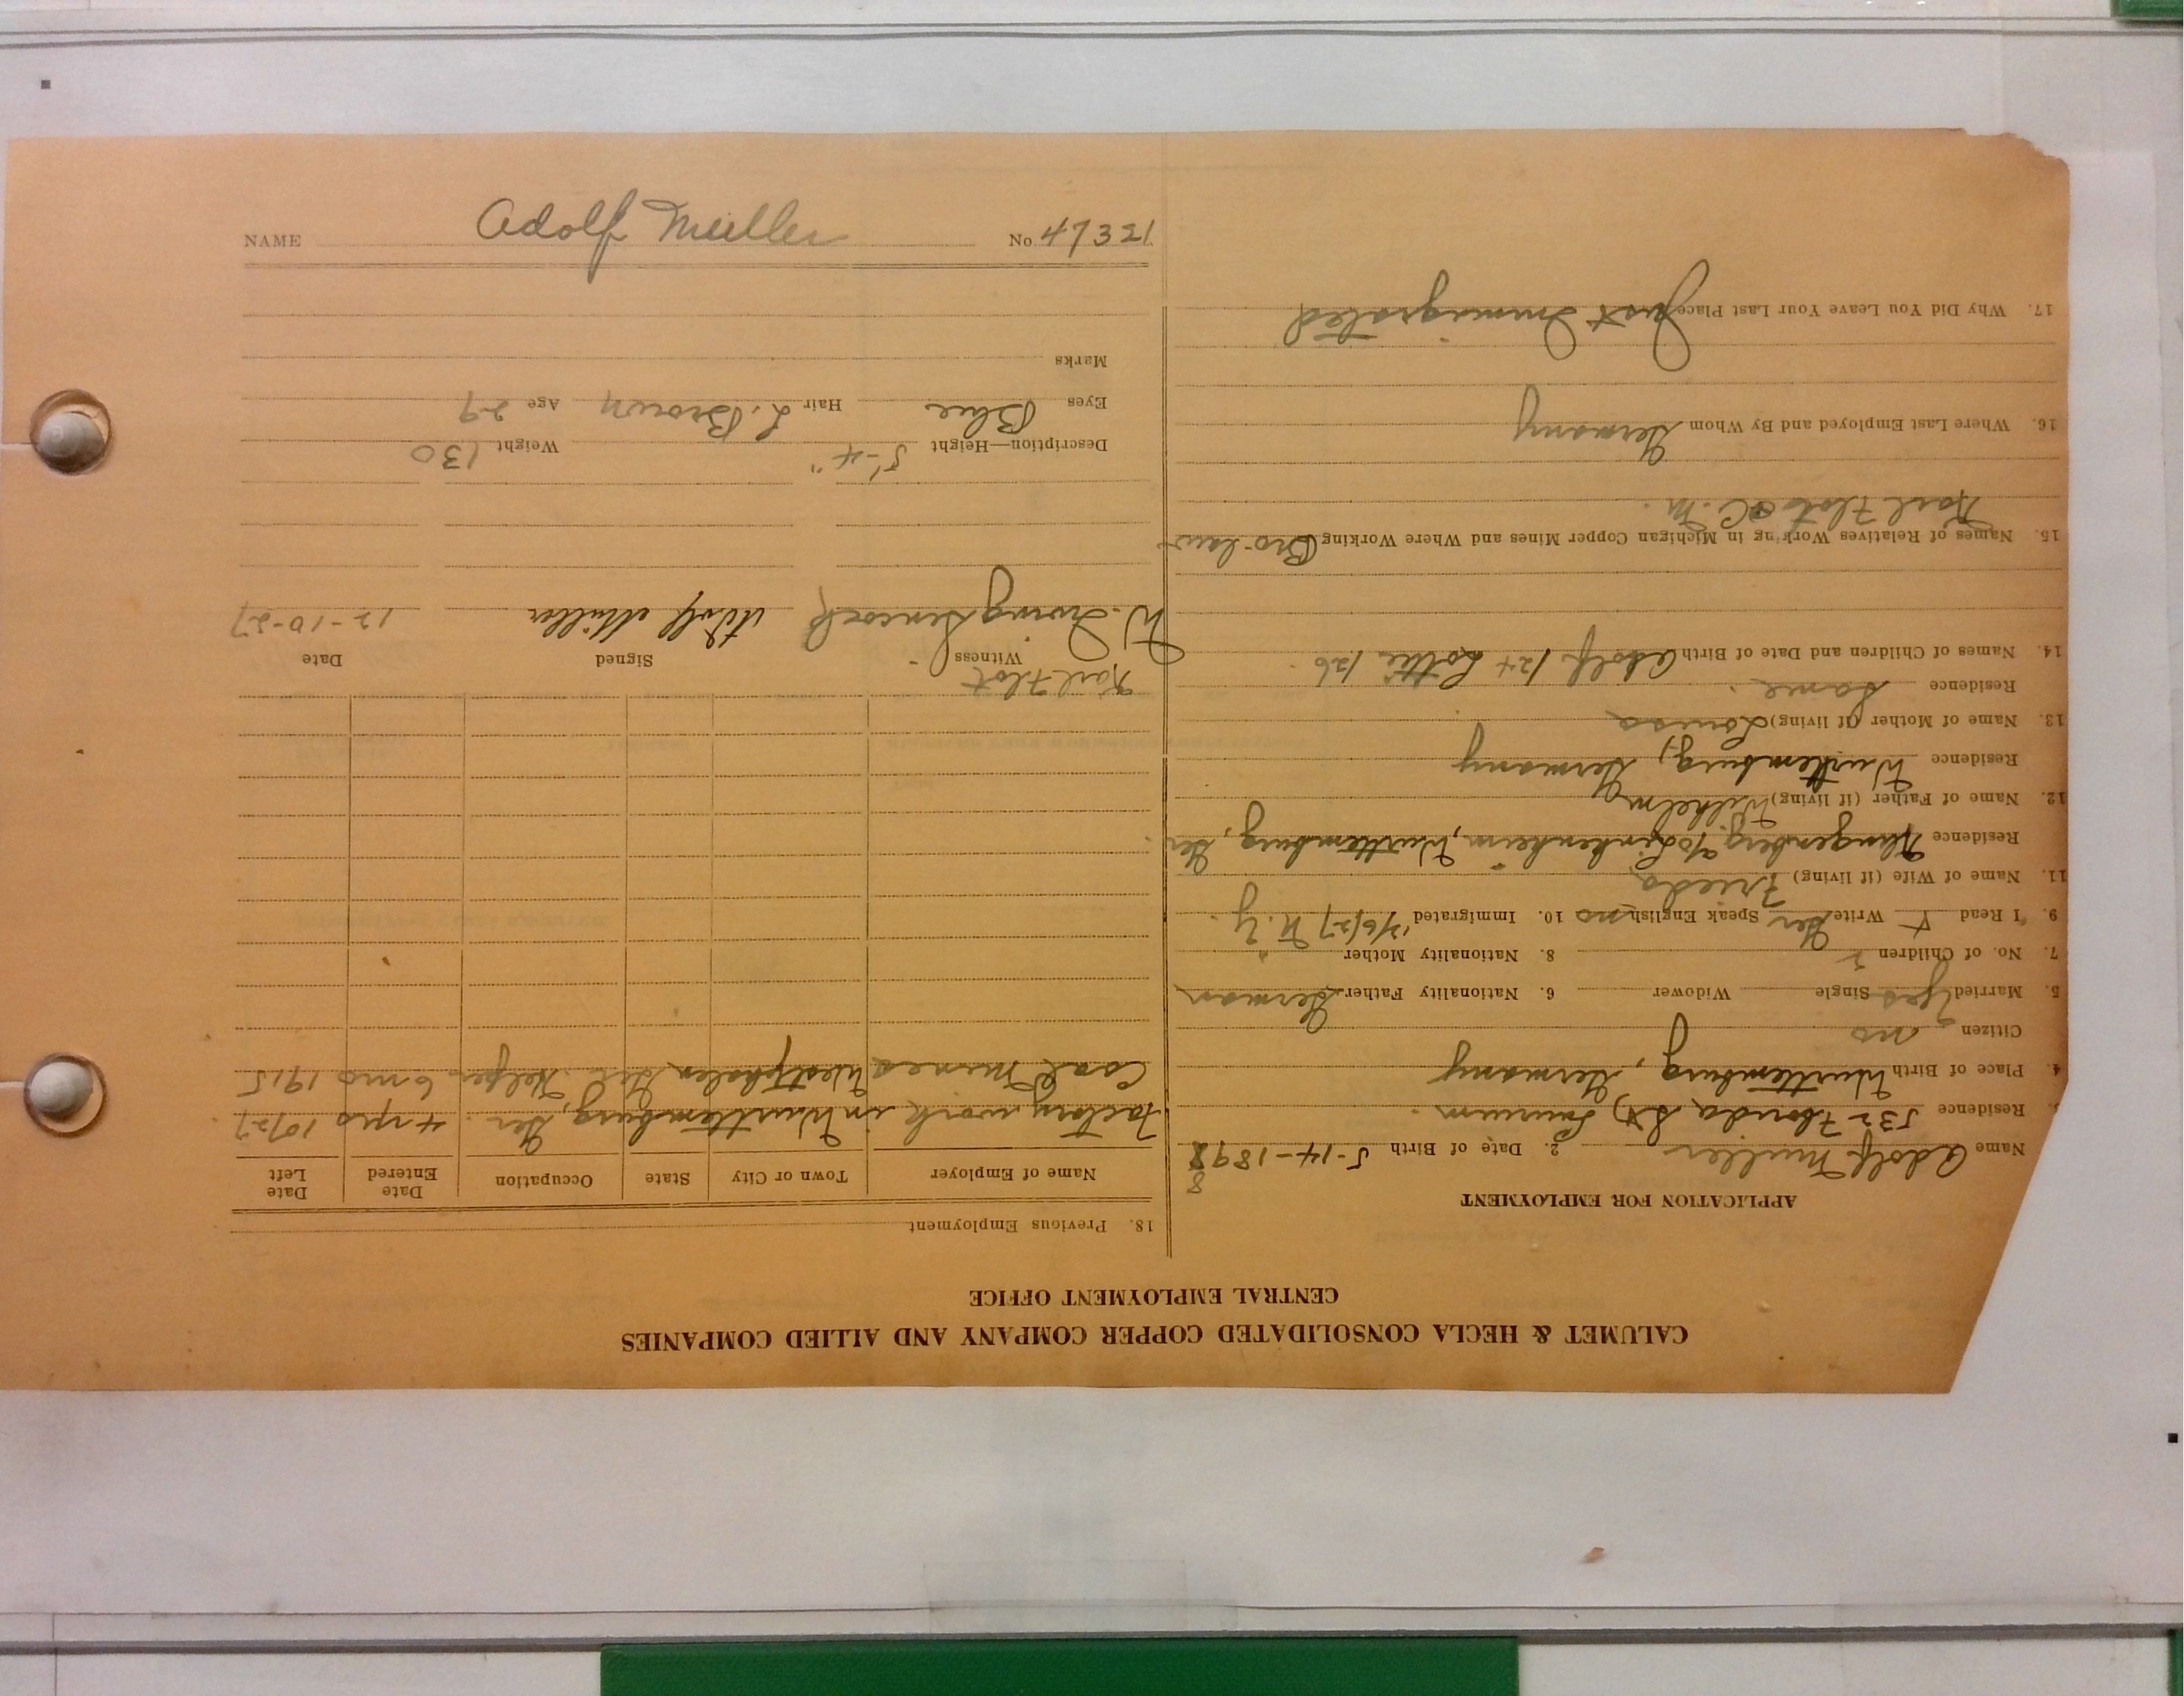 NAME Adolf Mueller No. 47321
CALUMET & HECLA CONSOLIDATED COPPER COMPANY AND ALLIED COMPANIES
CENTRAL EMPLOYMENT OFFICE
APPLICATION FOR EMPLOYMENT
Name Adolf Mueller 2. Date of Birth 5-14-1898
3. Residence 532 Florida St, Laurium
4. Place of Birth Wurttemburg, Germany
Citizen no
5. Married Yes Single Widower 6. Nationality Father German
7. No. of Children 2 8. Nationality Mother "
9. I Read Write Ger Speak English no 10. Immigrated /6/27 N.Y.
11. Name of Wife (if living) Frieda
Residence Klingenberg Wurttemburg, Ger
12. Name of Father (if living) Wilhelm
Residence Wurttemburg, Germany
13. Name of Mother (if living) Louisa
Residence Same
14. Names of Children and Date of Birth Adolf 1/24 Lottie 1/26
15. Names of Relatives Working in Michigan Copper Mines and Where Working Bro-law
Karl Flot C.M.
16. Where Last Employed and By Whom Germany
17. Why Did You Leave Your Last Place Just Immigrated
18. Previous Employment
Name of Employer Town or City State Occupation Date Entered Date Left
Factory work in Wurttemburg, Ger. 4 yrs 10/27
Coal Mines Westphalen, Ger. Helper 6 mo 1915
Karl Flot
Witness Signed Date
W. Irving Adolf Müller 12-10-27
Description—Height 5'-4" Weight 130
Eyes Blue Hair L. Brown Age 29
Marks